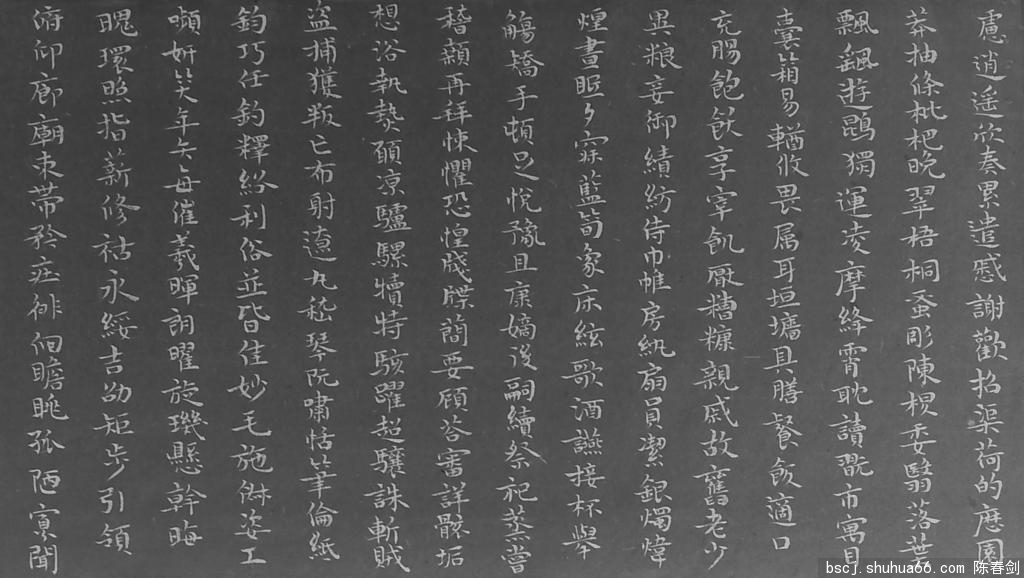 慮逍遥欣奏累遣慼謝歡招渠荷的歷園
莽抽條枇杷晚翠梧桐蚤彫陳根委翳落葉
飄飖遊鵾獨運凌摩絳霄耽讀翫市寓目
囊箱易輶攸畏属耳垣墻具膳飡飯適口
充腸飽飫享宰飢厭糟糠親戚故舊老少
異粮妾御績紡侍巾帷房紈扇員潔銀燭煒
煌晝眠夕寐藍筍象床絃歌酒讌接杯舉
觴矯手頓足悦豫且康嫡後嗣續祭祀蒸嘗
稽顙再拜悚懼恐惶牋牒蕳要顧答審詳骸垢
想浴執熱願凉驢騾犢特駭躍超驤誅斬賊
盗捕獲叛亡布射遼丸嵇琴阮嘯恬筆倫紙
鈞巧任釣釋紛利俗並皆佳妙毛施淑姿工
嚬妍笑年矢每催羲暉朗曜旋璣懸斡晦
魄環照指薪修祜永綏吉劭矩步引領
俯仰廊廟束帶矜庄徘徊瞻眺孤陋寡聞
bscj.shuhua66.com 陈春剑